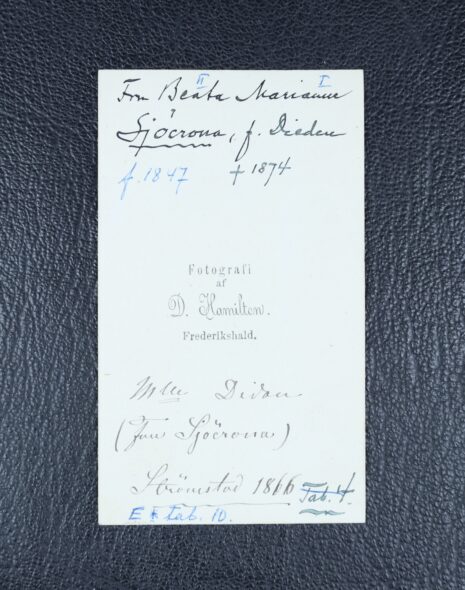 II I
Fru Beata Marianne
Sjöcrona, f. Dieden
f. 1847 + 1874
Fotografi
af
D. Hamilton.
Frederikshald.
Mlle Didon
(Fru Sjöcrona)
Strömstad 1866 Tab. 4.
E tab. 10.